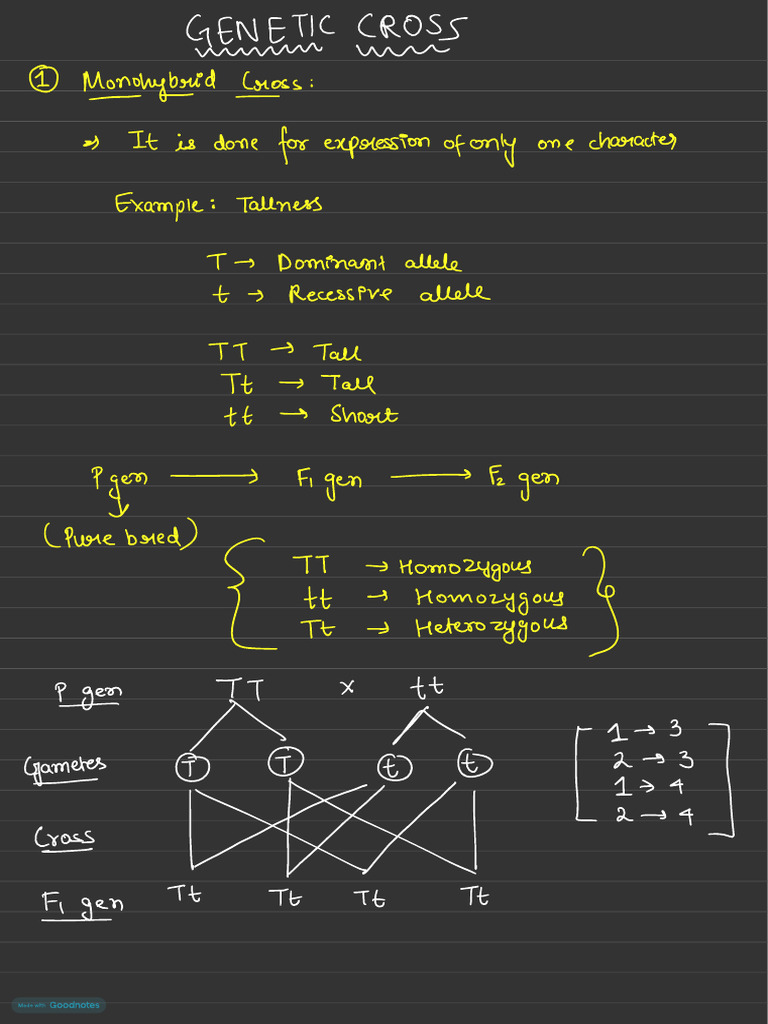 GENETIC CROSS
① Monohybrid Cross:
⇒ It is done for expression of only one character
Example: Tallness
T → Dominant allele
t → Recessive allele
TT → Tall
Tt → Tall
tt → Short
P gen → F₁ gen → F₂ gen
↓
(Pure bred)
{ TT → Homozygous }
tt → Homozygous
Tt → Heterozygous
P gen TT x tt
Gametes T T t t
[ 1 → 3 ]
2 → 3
1 → 4
2 → 4
Cross
F₁ gen Tt Tt Tt Tt
Made with Goodnotes